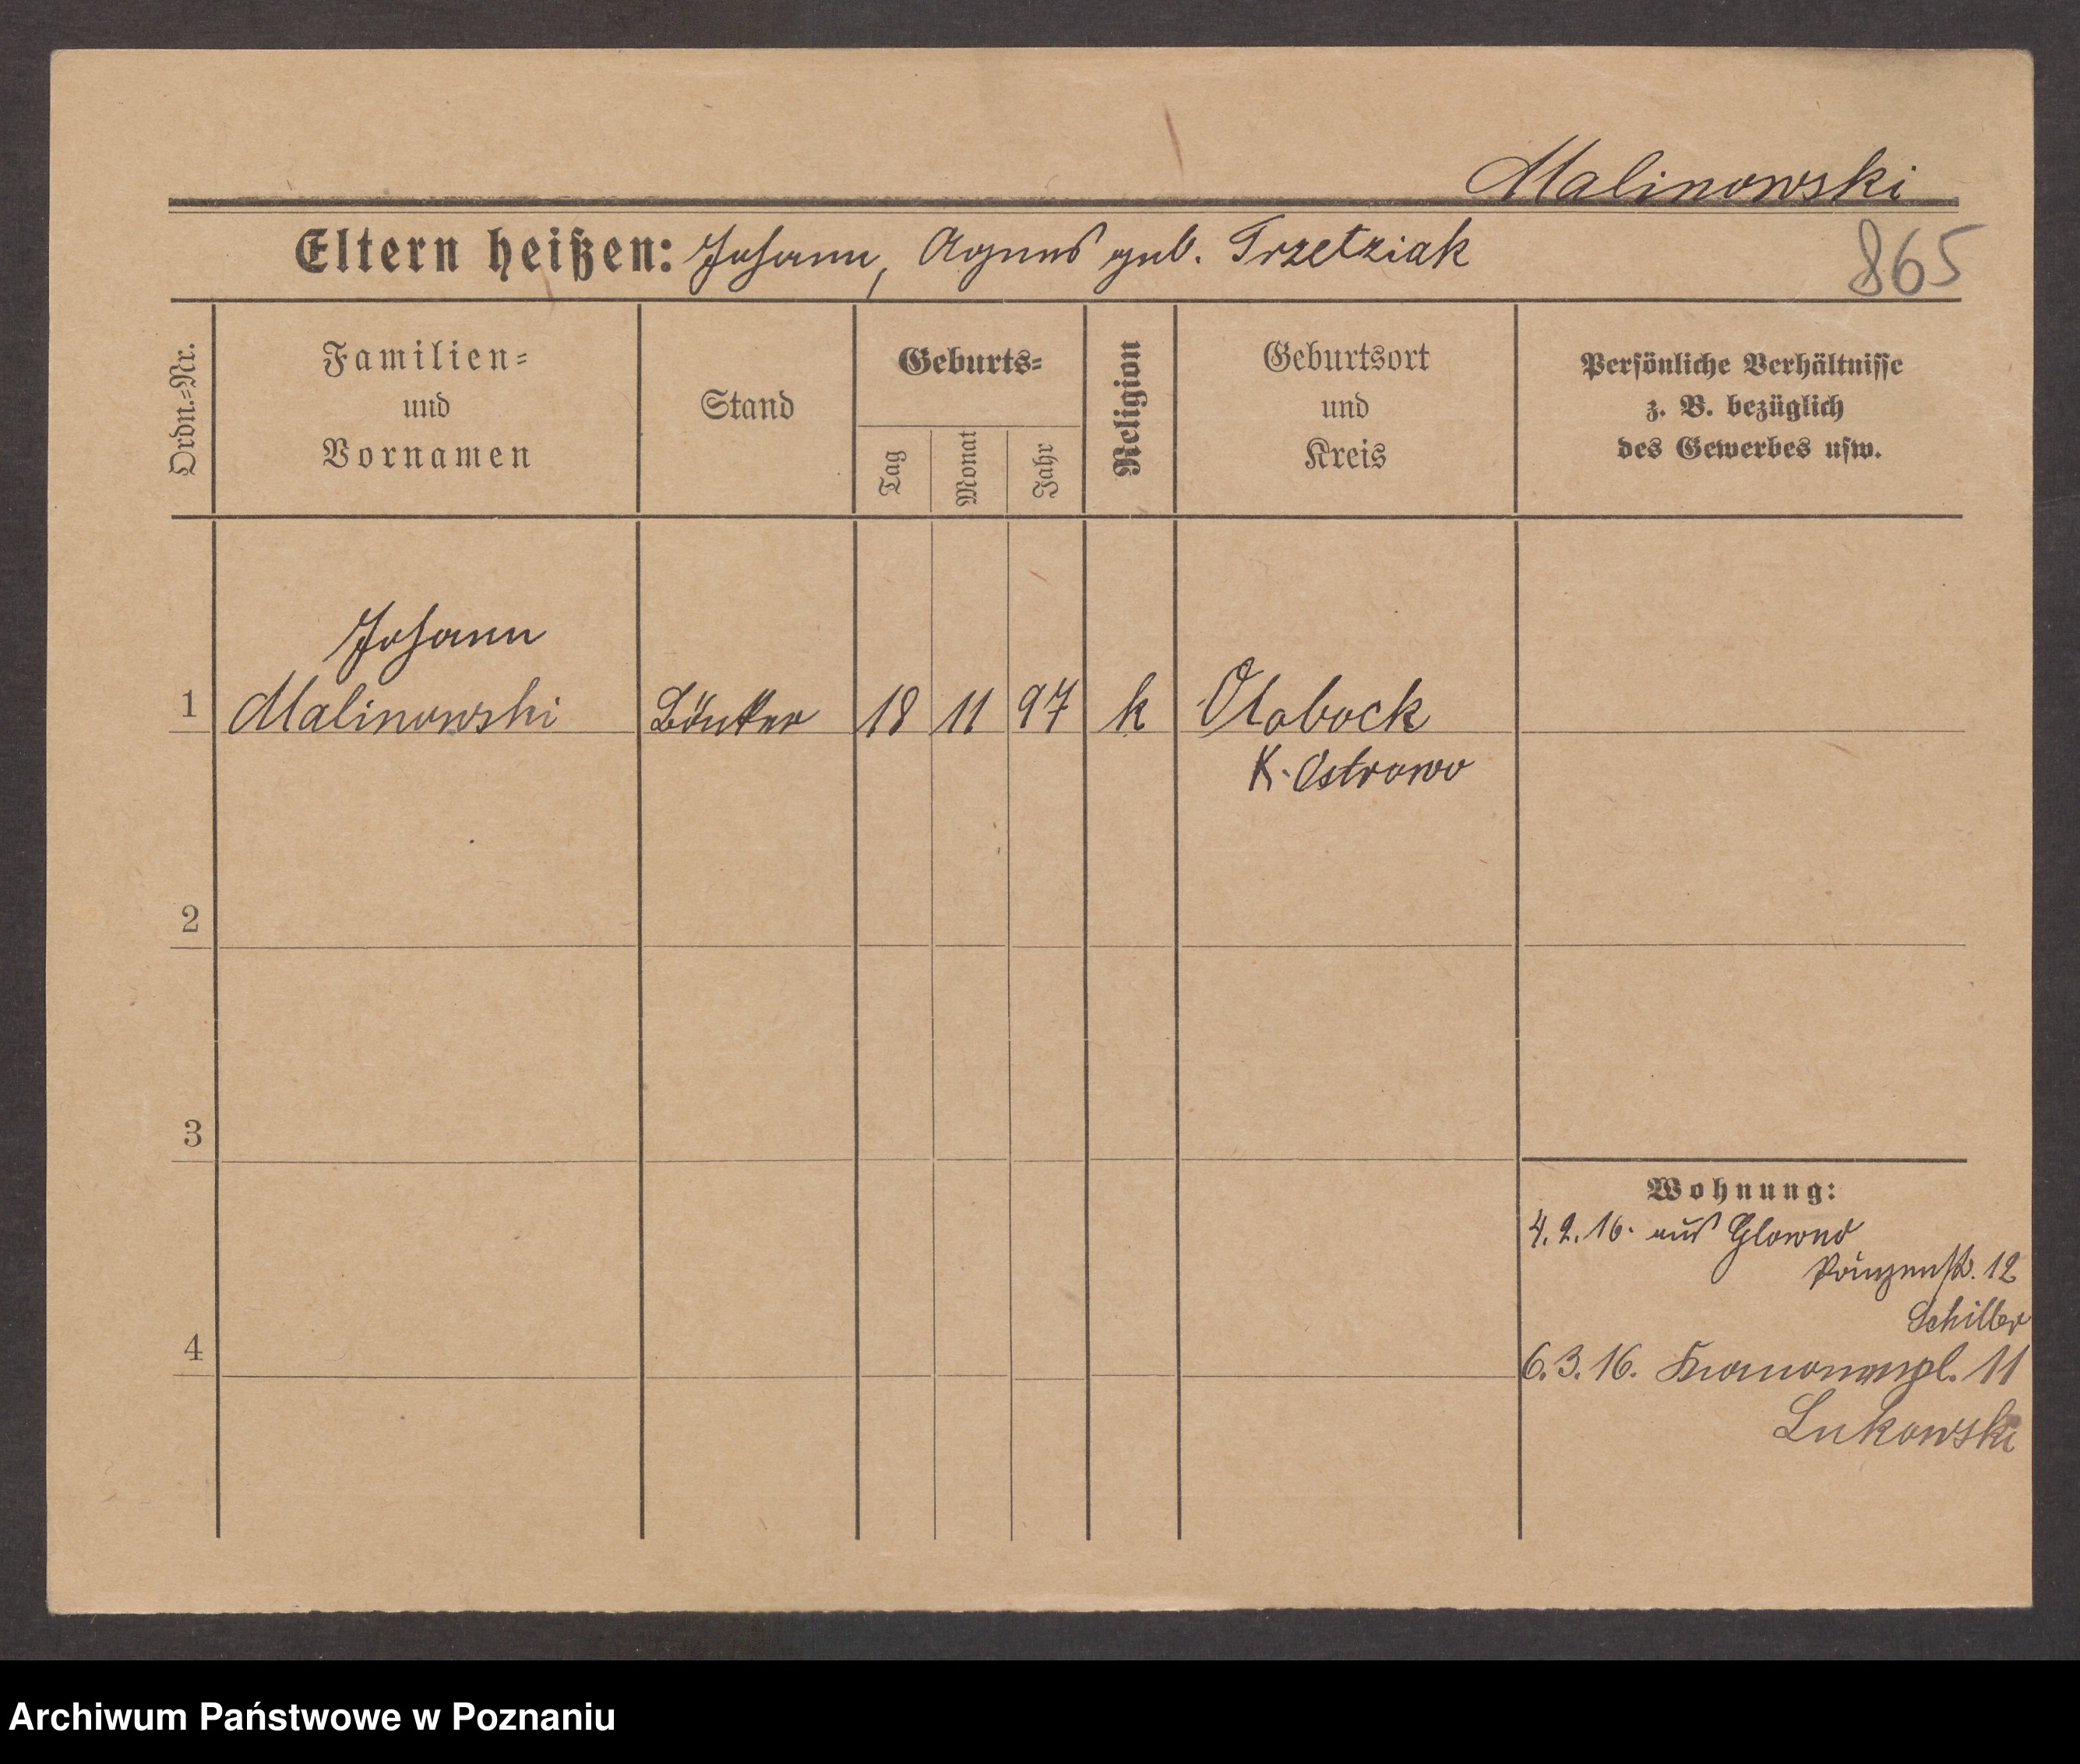 Malinowski
Eltern heißen: Johann, Agnes geb. Trzetziak
865
Ordn.=Nr.
Familien=
und
Vornamen
Stand
Geburts=
Tag
Monat
Jahr
Religion
Geburtsort
und
Kreis
Persönliche Verhältnisse
z. B. bezüglich
des Gewerbes usw.
Johann
1 Malinowski 18 11 97 k Olobock
K. Ostrowo
2
3
Wohnung:
4.2.16. aus Glowno
Prinzenstr. 12
Schiller
4
6.3.16. 11
Lukowski
Archiwum Państwowe w Poznaniu